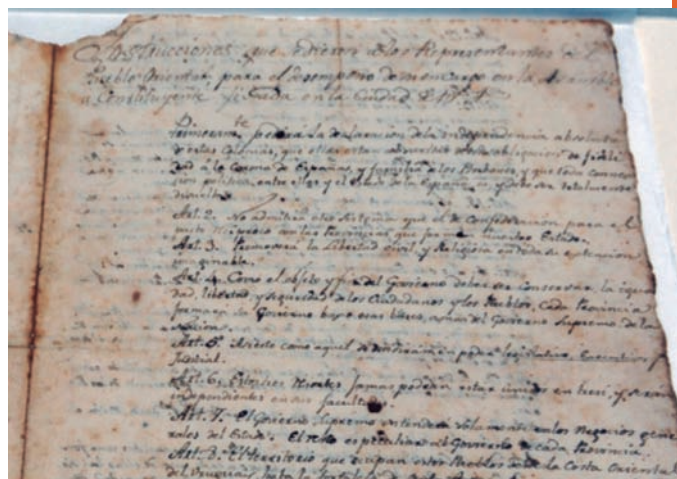 Instrucciones que se dieron a los Representantes del
Pueblo Oriental, para el desempeño de su encargo en la Asamblea
Constituyente fixada en la Ciudad de Bs As
Primeramte pedirá la declaracion de la independencia absoluta
de estas Colonias, que ellas estan absueltas de toda obligacion de fideli
dad á la Corona de España, y familia de los Borbones, y que toda conne-
xion politica entre ellas y el Estado de la España, es, y debe ser totalmente
disuelta.
Art. 2. No admitirá otro sistema que el de Confederacion para el
pacto reciproco con las Provincias que formen nuestro Estado.
Art. 3. Promoverá la Libertad civil, y Religiosa en toda su extencion
imaginable.
Art. 4. Como el objeto y fin del Govierno debe ser conservar la igual
dad, libertad, y seguridad de los Ciudadanos y los Pueblos, cada Provincia
formará su Govierno bajo esas bases, á mas del Govierno Supremo de la
Nacion.
Art. 5. Asi este como aquel se dividirán en poder legislativo, Executivo y
Judicial.
Art. 6. Estos tres jamas podrán estar unidos entre sí, y serán
independientes en sus facultades.
Art. 7. El Govierno Supremo entenderá solamente en los negocios gene
rales del Estado. El resto es peculiar al Govierno de cada Provincia.
Art. 8. El territorio que ocupan estos Pueblos desde la Costa Oriental
del Uruguay, hasta la fortaleza de